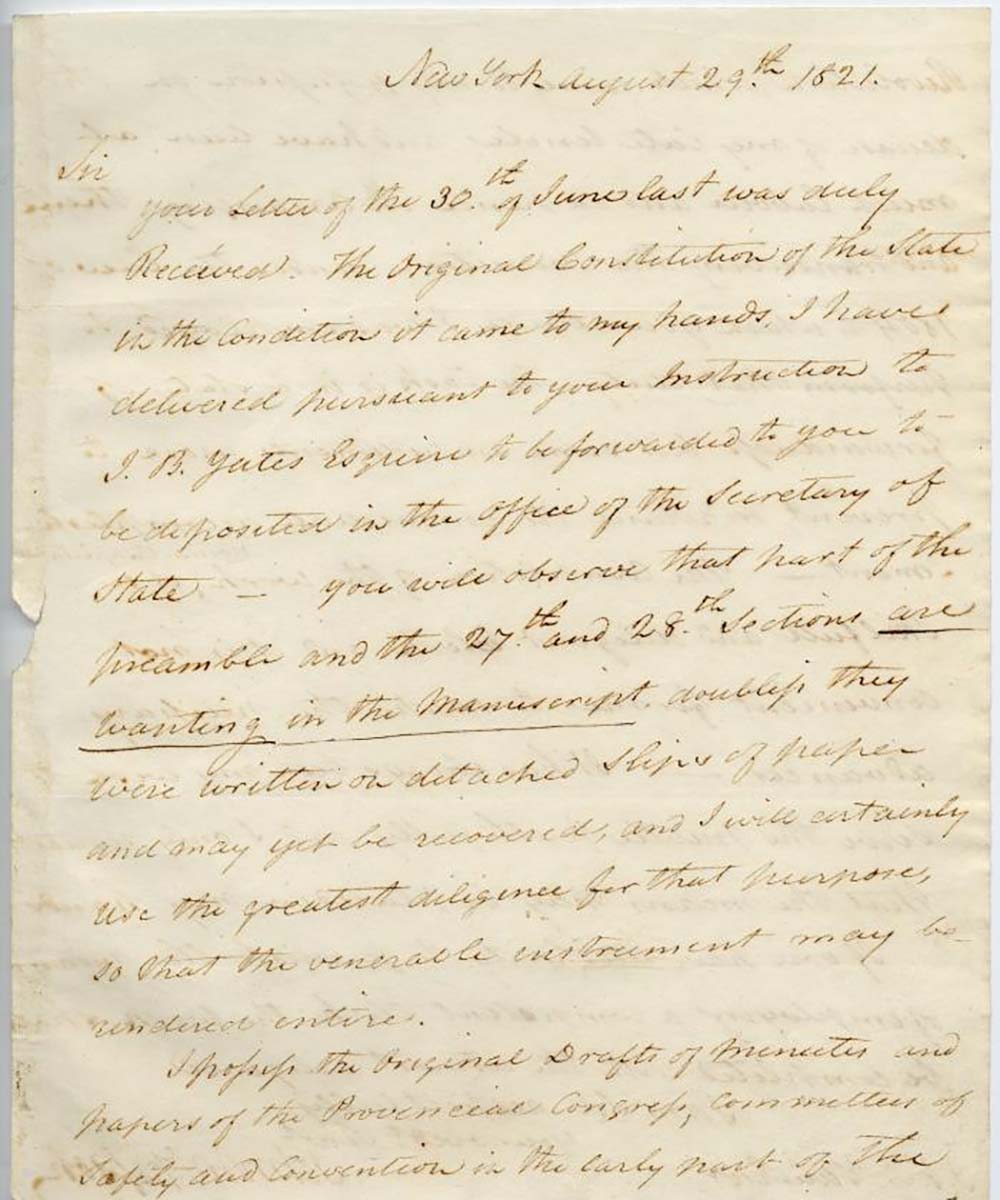 New York August 29.th 1821.
Sir
your Letter of the 30.th of June last was duly
Received. The Original Constitution of the State
in the Condition it came to my hands, I have
delivered pursuant to your Instruction to
J. B. Yates Esquire to be forwarded to you to
be deposited in the Office of the Secretary of
State — you will observe that part of the
preamble and the 27.th and 28.th Sections are
wanting in the Manuscript. doubless they
were written on detached Slips of paper
and may yet be recovered, and I will certainly
use the greatest diligence for that purpose,
so that the venerable instrument may be
rendered entire.
I possess the Original Drafts of Minutes and
papers of the Provincial Congress, Committees of
Safety and Convention in the early part of the